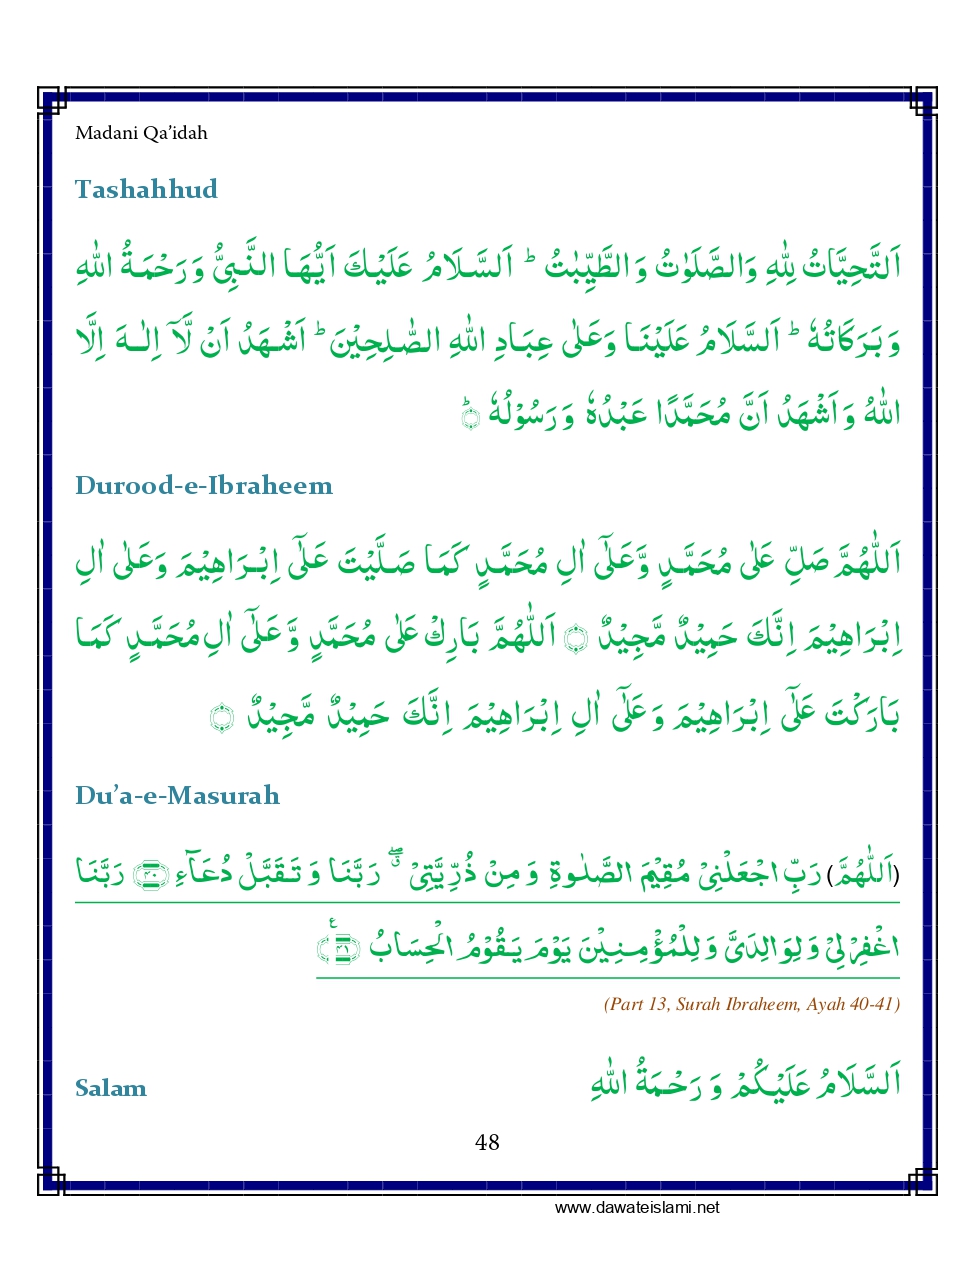 Madani Qa’idah
Tashahhud
اَلتَّحِيَّاتُ لِلّٰهِ وَالصَّلَوٰتُ وَالطَّيِّبٰتُ ؕ اَلسَّلَامُ عَلَيْكَ اَيُّهَا النَّبِيُّ وَرَحْمَةُ اللّٰهِ
وَبَرَكَاتُهٗ ؕ اَلسَّلَامُ عَلَيْنَا وَعَلٰى عِبَادِ اللّٰهِ الصّٰلِحِيْنَ ؕ اَشْهَدُ اَنْ لَّآ اِلٰهَ اِلَّا
اللّٰهُ وَاَشْهَدُ اَنَّ مُحَمَّدًا عَبْدُهٗ وَرَسُوْلُهٗ ۝ؕ
Durood-e-Ibraheem
اَللّٰهُمَّ صَلِّ عَلٰى مُحَمَّدٍ وَّعَلٰٓى اٰلِ مُحَمَّدٍ كَمَا صَلَّيْتَ عَلٰٓى اِبْرَاهِيْمَ وَعَلٰٓى اٰلِ
اِبْرَاهِيْمَ اِنَّكَ حَمِيْدٌ مَّجِيْدٌ ۝ اَللّٰهُمَّ بَارِكْ عَلٰى مُحَمَّدٍ وَّعَلٰٓى اٰلِ مُحَمَّدٍ كَمَا
بَارَكْتَ عَلٰٓى اِبْرَاهِيْمَ وَعَلٰٓى اٰلِ اِبْرَاهِيْمَ اِنَّكَ حَمِيْدٌ مَّجِيْدٌ ۝
Du’a-e-Masurah
(اَللّٰهُمَّ) رَبِّ اجْعَلْنِيْ مُقِيْمَ الصَّلٰوةِ وَمِنْ ذُرِّيَّتِيْ ۖۗ رَبَّنَا وَتَقَبَّلْ دُعَآءِ ﴿۴۰﴾ رَبَّنَا
اغْفِرْ لِيْ وَلِوَالِدَيَّ وَلِلْمُؤْمِنِيْنَ يَوْمَ يَقُوْمُ الْحِسَابُ ﴿۴۱﴾ ع
(Part 13, Surah Ibraheem, Ayah 40-41)
Salam اَلسَّلَامُ عَلَيْكُمْ وَرَحْمَةُ اللّٰهِ
48
www.dawateislami.net